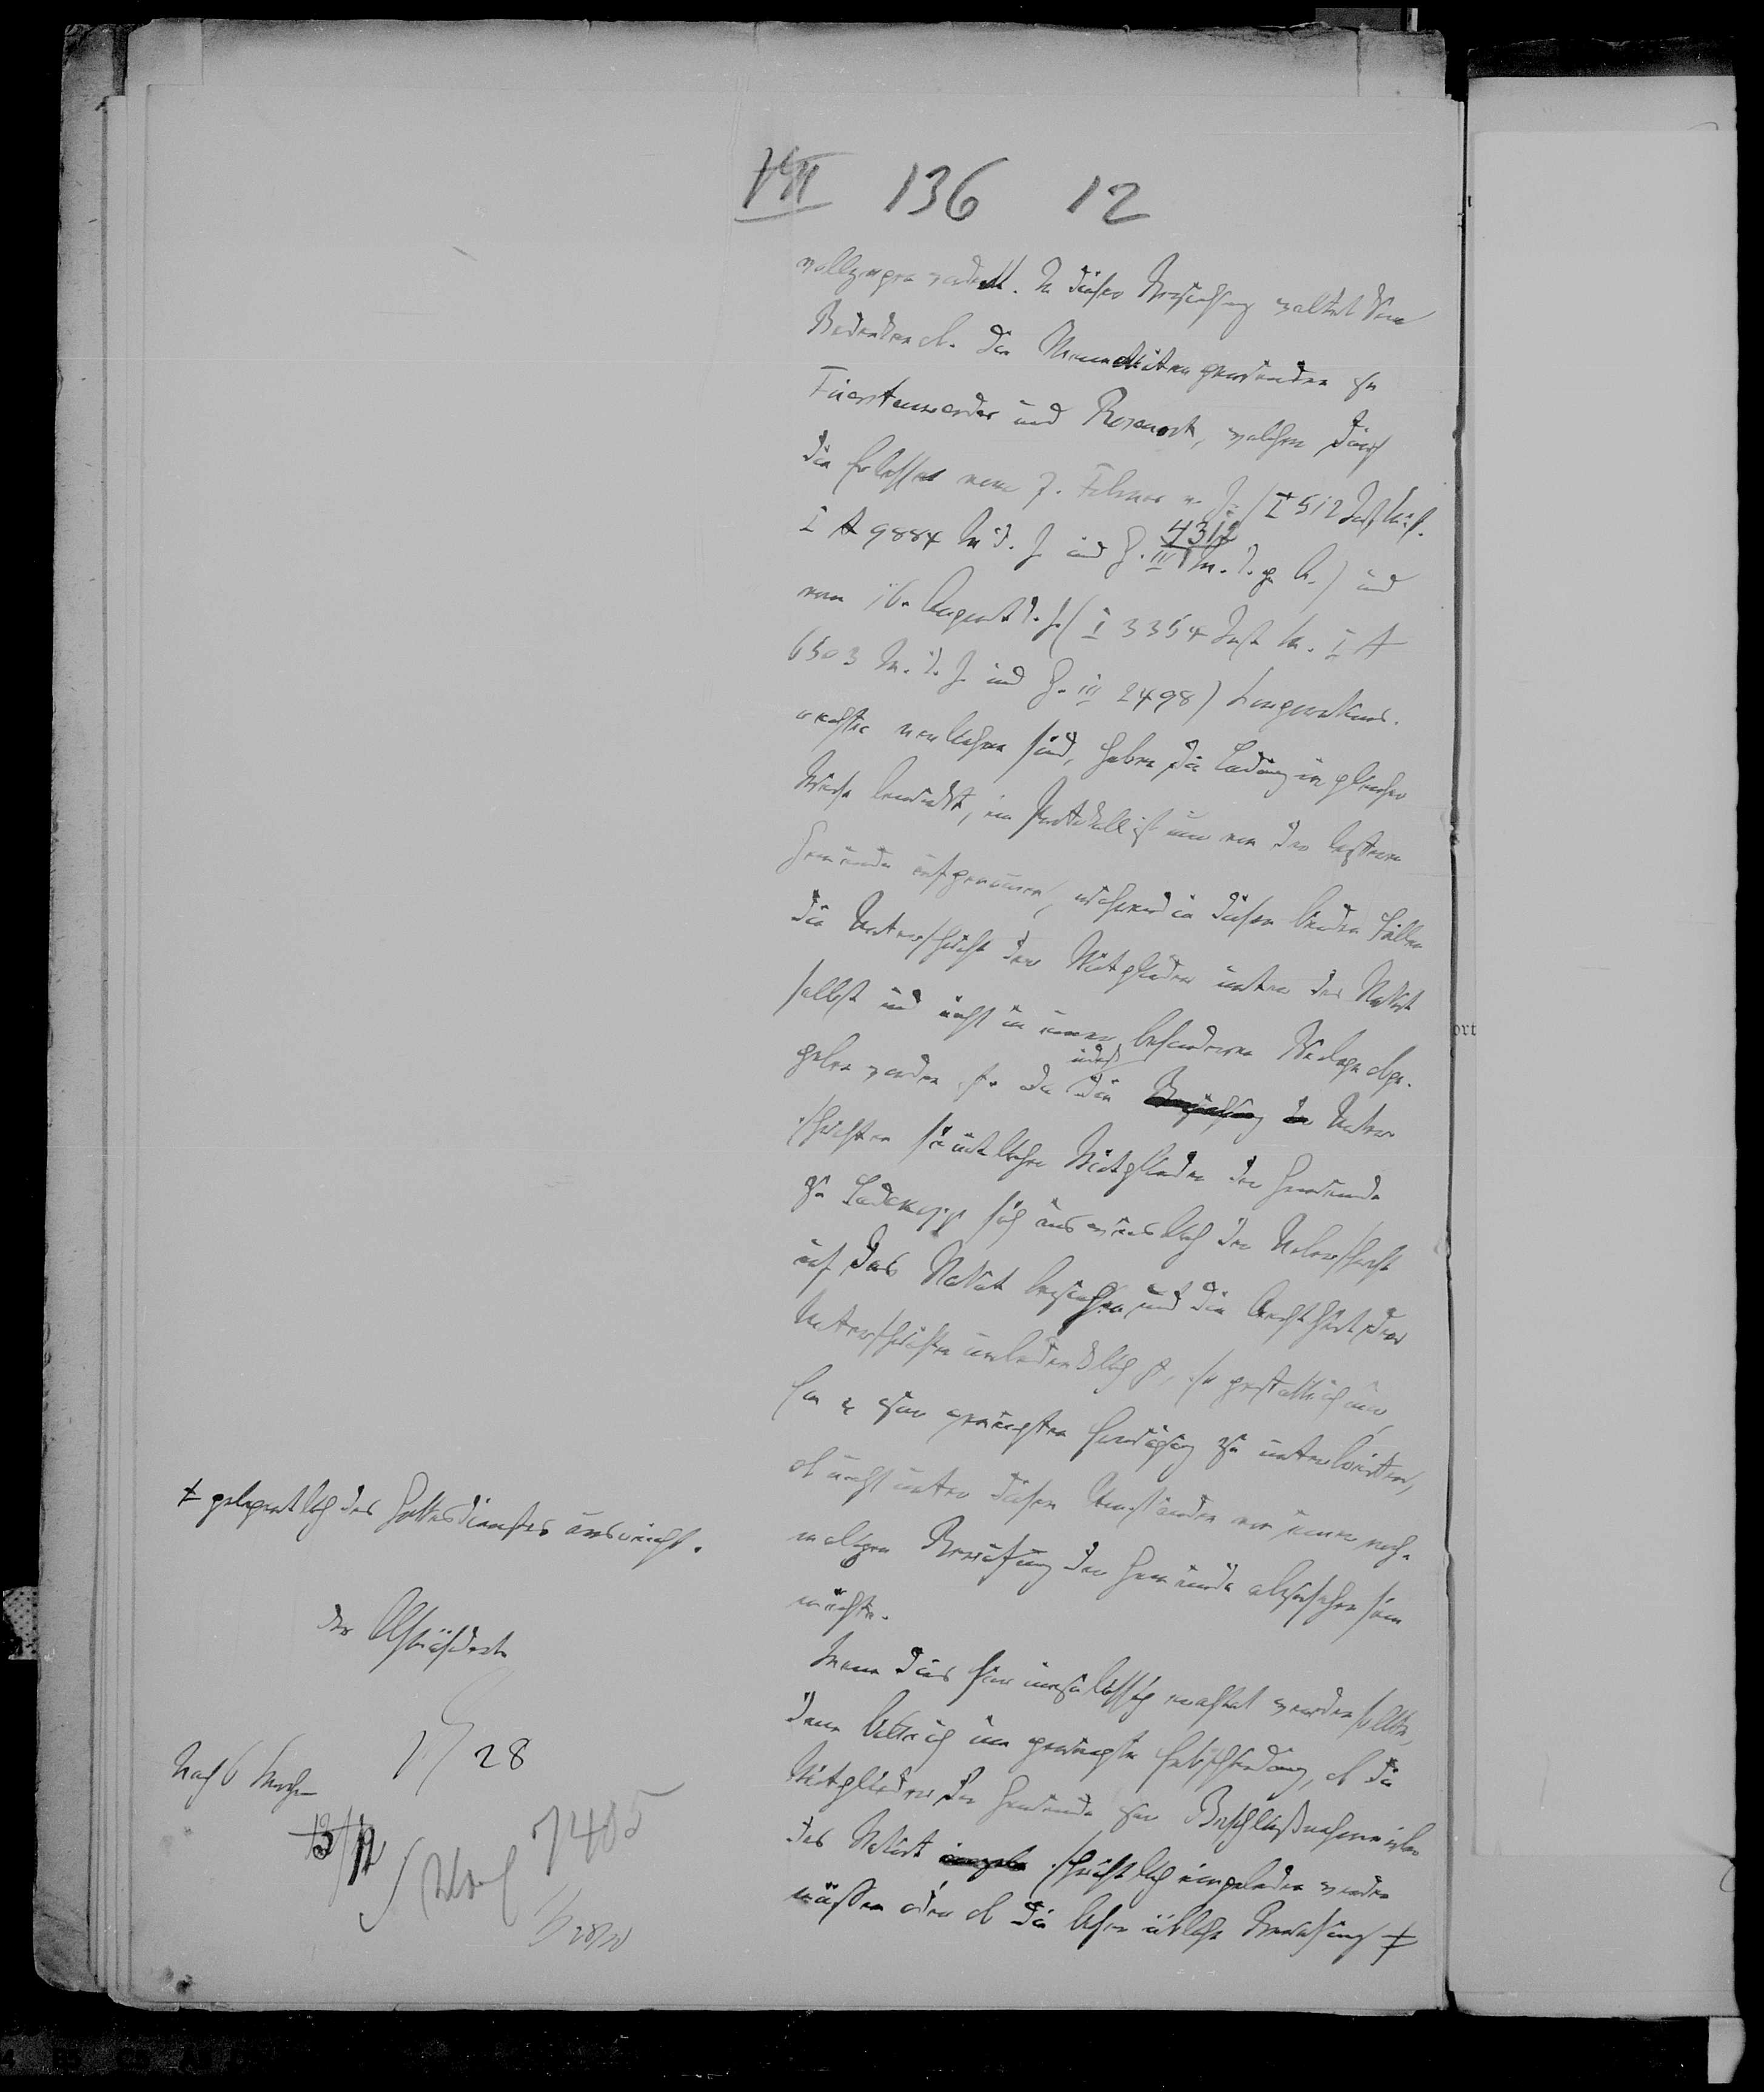 VII 136 12
vollzogen werden. In dieser Beziehung waltet kein
Bedenken ob. Die Mennonitengemeinden zu
Fürstenwerder und Rosenort, welchen durch
die Erlasse vom 7. Februar v. J. (I 512 Just. Min.
I A 9884 M. d. J. und G. III 4312 M. d. g. A.) und
vom 16. August d. J. (I 3354 Just. M. I A
6503 M. d. J. und G. III 2498) Korporations-
rechte verliehen sind, haben die Ladung in gleicher
Weise bewirkt, ein Protokoll ist nur von der letzteren
Gemeinde aufgenommen, während in diesen beiden Fällen
die Unterschrift der Mitglieder unter das Statut
selbst und nicht in einer besonderen Anlage abge-
geben worden ist. Da indeß die Unter-
schriften sämtlicher Mitglieder der Gemeinde
zu Ladekopp sich ausweislich der Ueberschrift
auf das Statut beziehen und die Aechtheit der
Unterschriften unbedenklich ist, so gestatte ich mir,
Ew. zur geneigten Erwägung zu unterbreiten,
ob nicht unter diesen Umständen von einer noch-
maligen Berufung der Gemeinde abzusehen sein
möchte.
Wenn dies für unzulässig erachtet werden sollte,
dann bitte ich um geneigte Entscheidung, ob die
Mitglieder der Gemeinde zur Beschlußnahme über
das Statut schriftlich eingeladen werden
müssen oder ob die bisher übliche Berufung ‡
‡ gelegentlich des Gottesdienstes ausreicht.
Der Oberpräsident
28
Nach 6 Wochen
13/12
7405
28/10